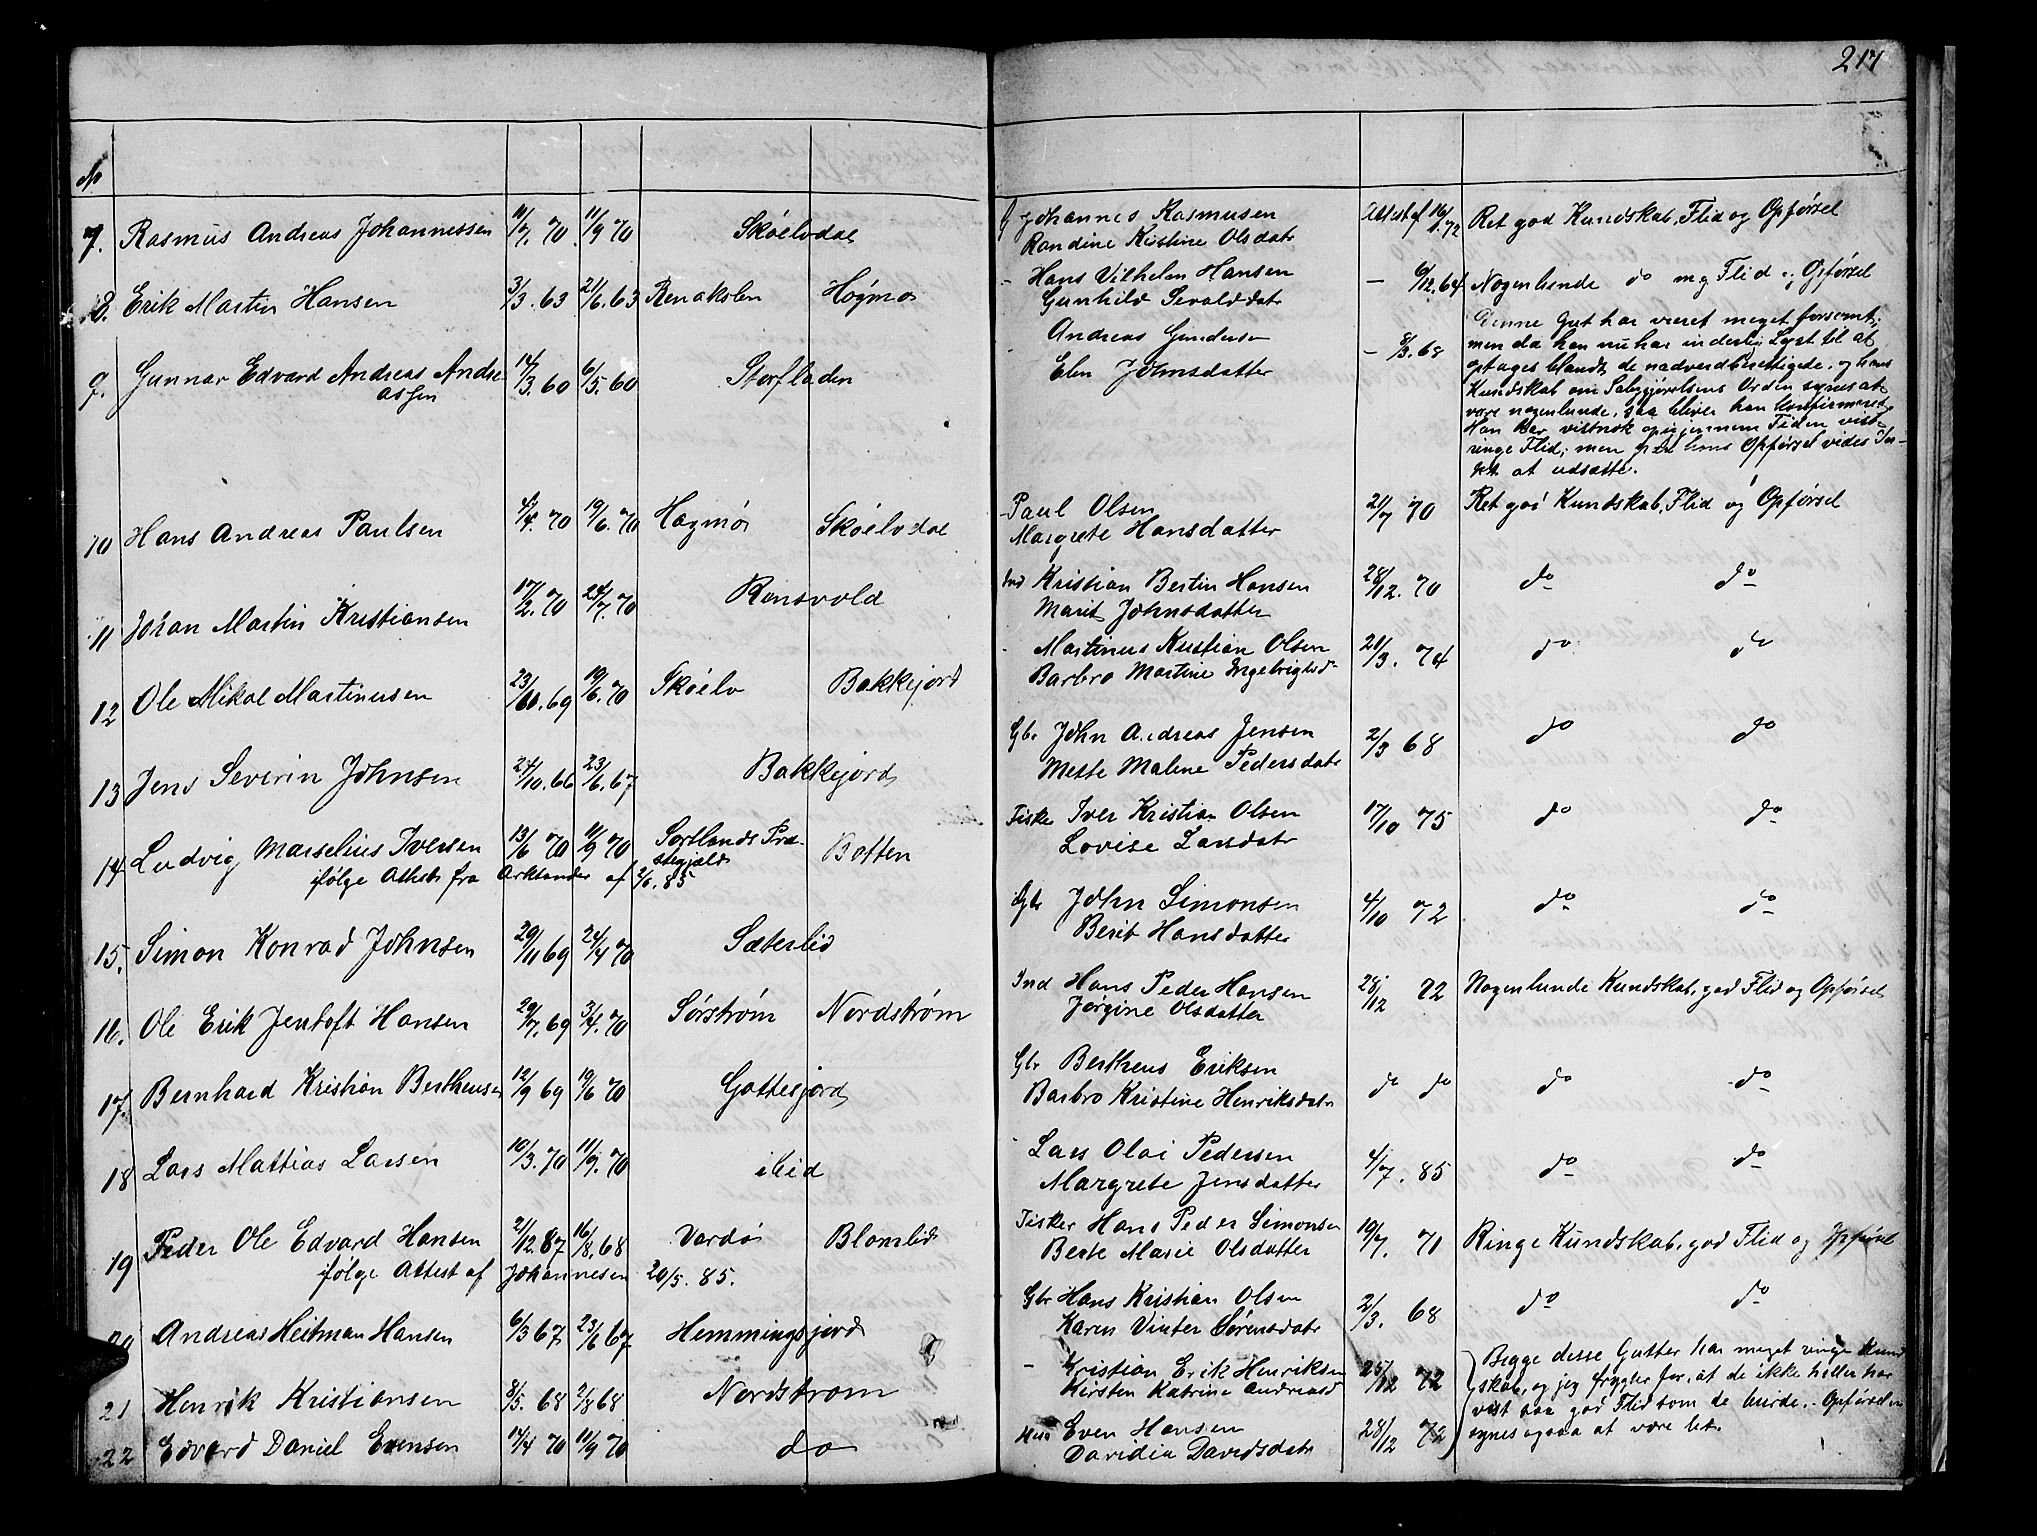 217
No
7. Rasmus Andreas Johannessen 11/7. 70 11/9 70 Skøelvdal G Johannes Rasmusen Attest af 16/1. 72 Ret god Kundskab, Flid og Opførsel
Randine Kristine Olsdatr
8. Erik Martin Hansen 3/3. 63 21/6. 63 Renakslen Høgmo - Hans Vilhelm Hansen - 6/12. 64 Nogenlunde do mg Flid og Opførsel
Gunhild Sevalddatr
9. Gunnar Edvard Andreas Andre 14/3. 60 6/5. 60 Storfladen Andreas Gundersen - 8/3. 68 Denne Gut har været meget forsømt;
assen Elen Johnsdatter men da han nu har inderlig Lyst til at
optages blandt de nadverdberettigede, og hans
Kundskab om Saliggjørelsens Orden synes at
være nogenlunde, saa bliver han konfirmeret.
Han har vistnok op igjennem Tiden vist
ringe Flid; men paa hans Opførsel vides In-
tet at udsætte.
10 Hans Andreas Paulsen 4/4. 70 19/6. 70 Høgmo Skøelvdal - Paul Olsen 21/7 70 Ret god Kundskab, Flid og Opførsel
Margrete Hansdatter
11 Johan Martin Kristiansen 17/2. 70 24/7. 70 Rensvold Ind Kristian Bertin Hansen 28/12. 70 do do
Marit Johnsdatter
12 Ole Mikal Martinusen 23/10. 69 19/6. 70 Skøelv Bakkejord - Martinus Kristian Olsen 21/3. 74 do do
Barbro Martine Ingebrigtsd
13 Jens Severin Johnsen 24/10. 66 23/6. 67 Bakkejord Gbr John Andreas Jensen 2/3 68 do do
Mette Malene Pedersdatr
14 Ludvig Marselius Iversen 13/6 70 11/9 70 Sortlands Præ- Botten Fisker Iver Kristian Olsen 17/10 75 do do
stegjæld Lovise Larsdatr
ifølge Attest fra Arktander af 2/6. 85
15. Simon Konrad Johnsen 29/11 69 24/4 70 Sæterlid Gbr John Simonsen 4/10 72 do do
Berit Hansdatter
16. Ole Erik Jentoft Hansen 29/7. 69 3/4. 70 Sørstrøm Nordstrøm Ind Hans Peder Hansen 28/12 72 Nogenlunde Kundskab, god Flid og Opførsel
Jørgine Olsdatter
17. Bernhard Kristian Bertheusen 12/9 69 19/6 70 Gottesjord Gbr Bertheus Eriksen do do do do
Barbro Kristine Henriksdatr
18 Lars Mattias Larsen 10/3. 70 11/9. 70 ibid - Lars Olai Pedersen 4/7. 85 do do
Margrete Jensdatter
19 Peder Ole Edvard Hansen 21/12. 67 16/8. 68 Vardø Blomlid Fisker Hans Peder Simonsen 19/7. 71 Ringe Kundskab, god Flid og Opførsel
ifølge Attest af Johannesen 20/5. 85. Berte Marie Olsdatter
20 Andreas Heitman Hansen 6/3 67 23/6 67 Hemmingsjord Gbr Hans Kristian Olsen 2/3. 68 do do
Karen Vinter Sørensdatr
21 Henrik Kristiansen 8/5. 68 2/8 68 Nordstrøm - Kristian Erik Henriksen 28/12 72 Begge disse Gutter har meget ringe Kund
Kirsten Katrine Andreasd skab, og jeg frygter for, at de ikke heller har
vist saa god Flid som de burde. - Opførselen
22 Edvard Daniel Evensen 14/4 70 11/9 70 do Hus Even Hansen 28/12 72 synes ogsaa at være let.
Daridia Davidsdatr